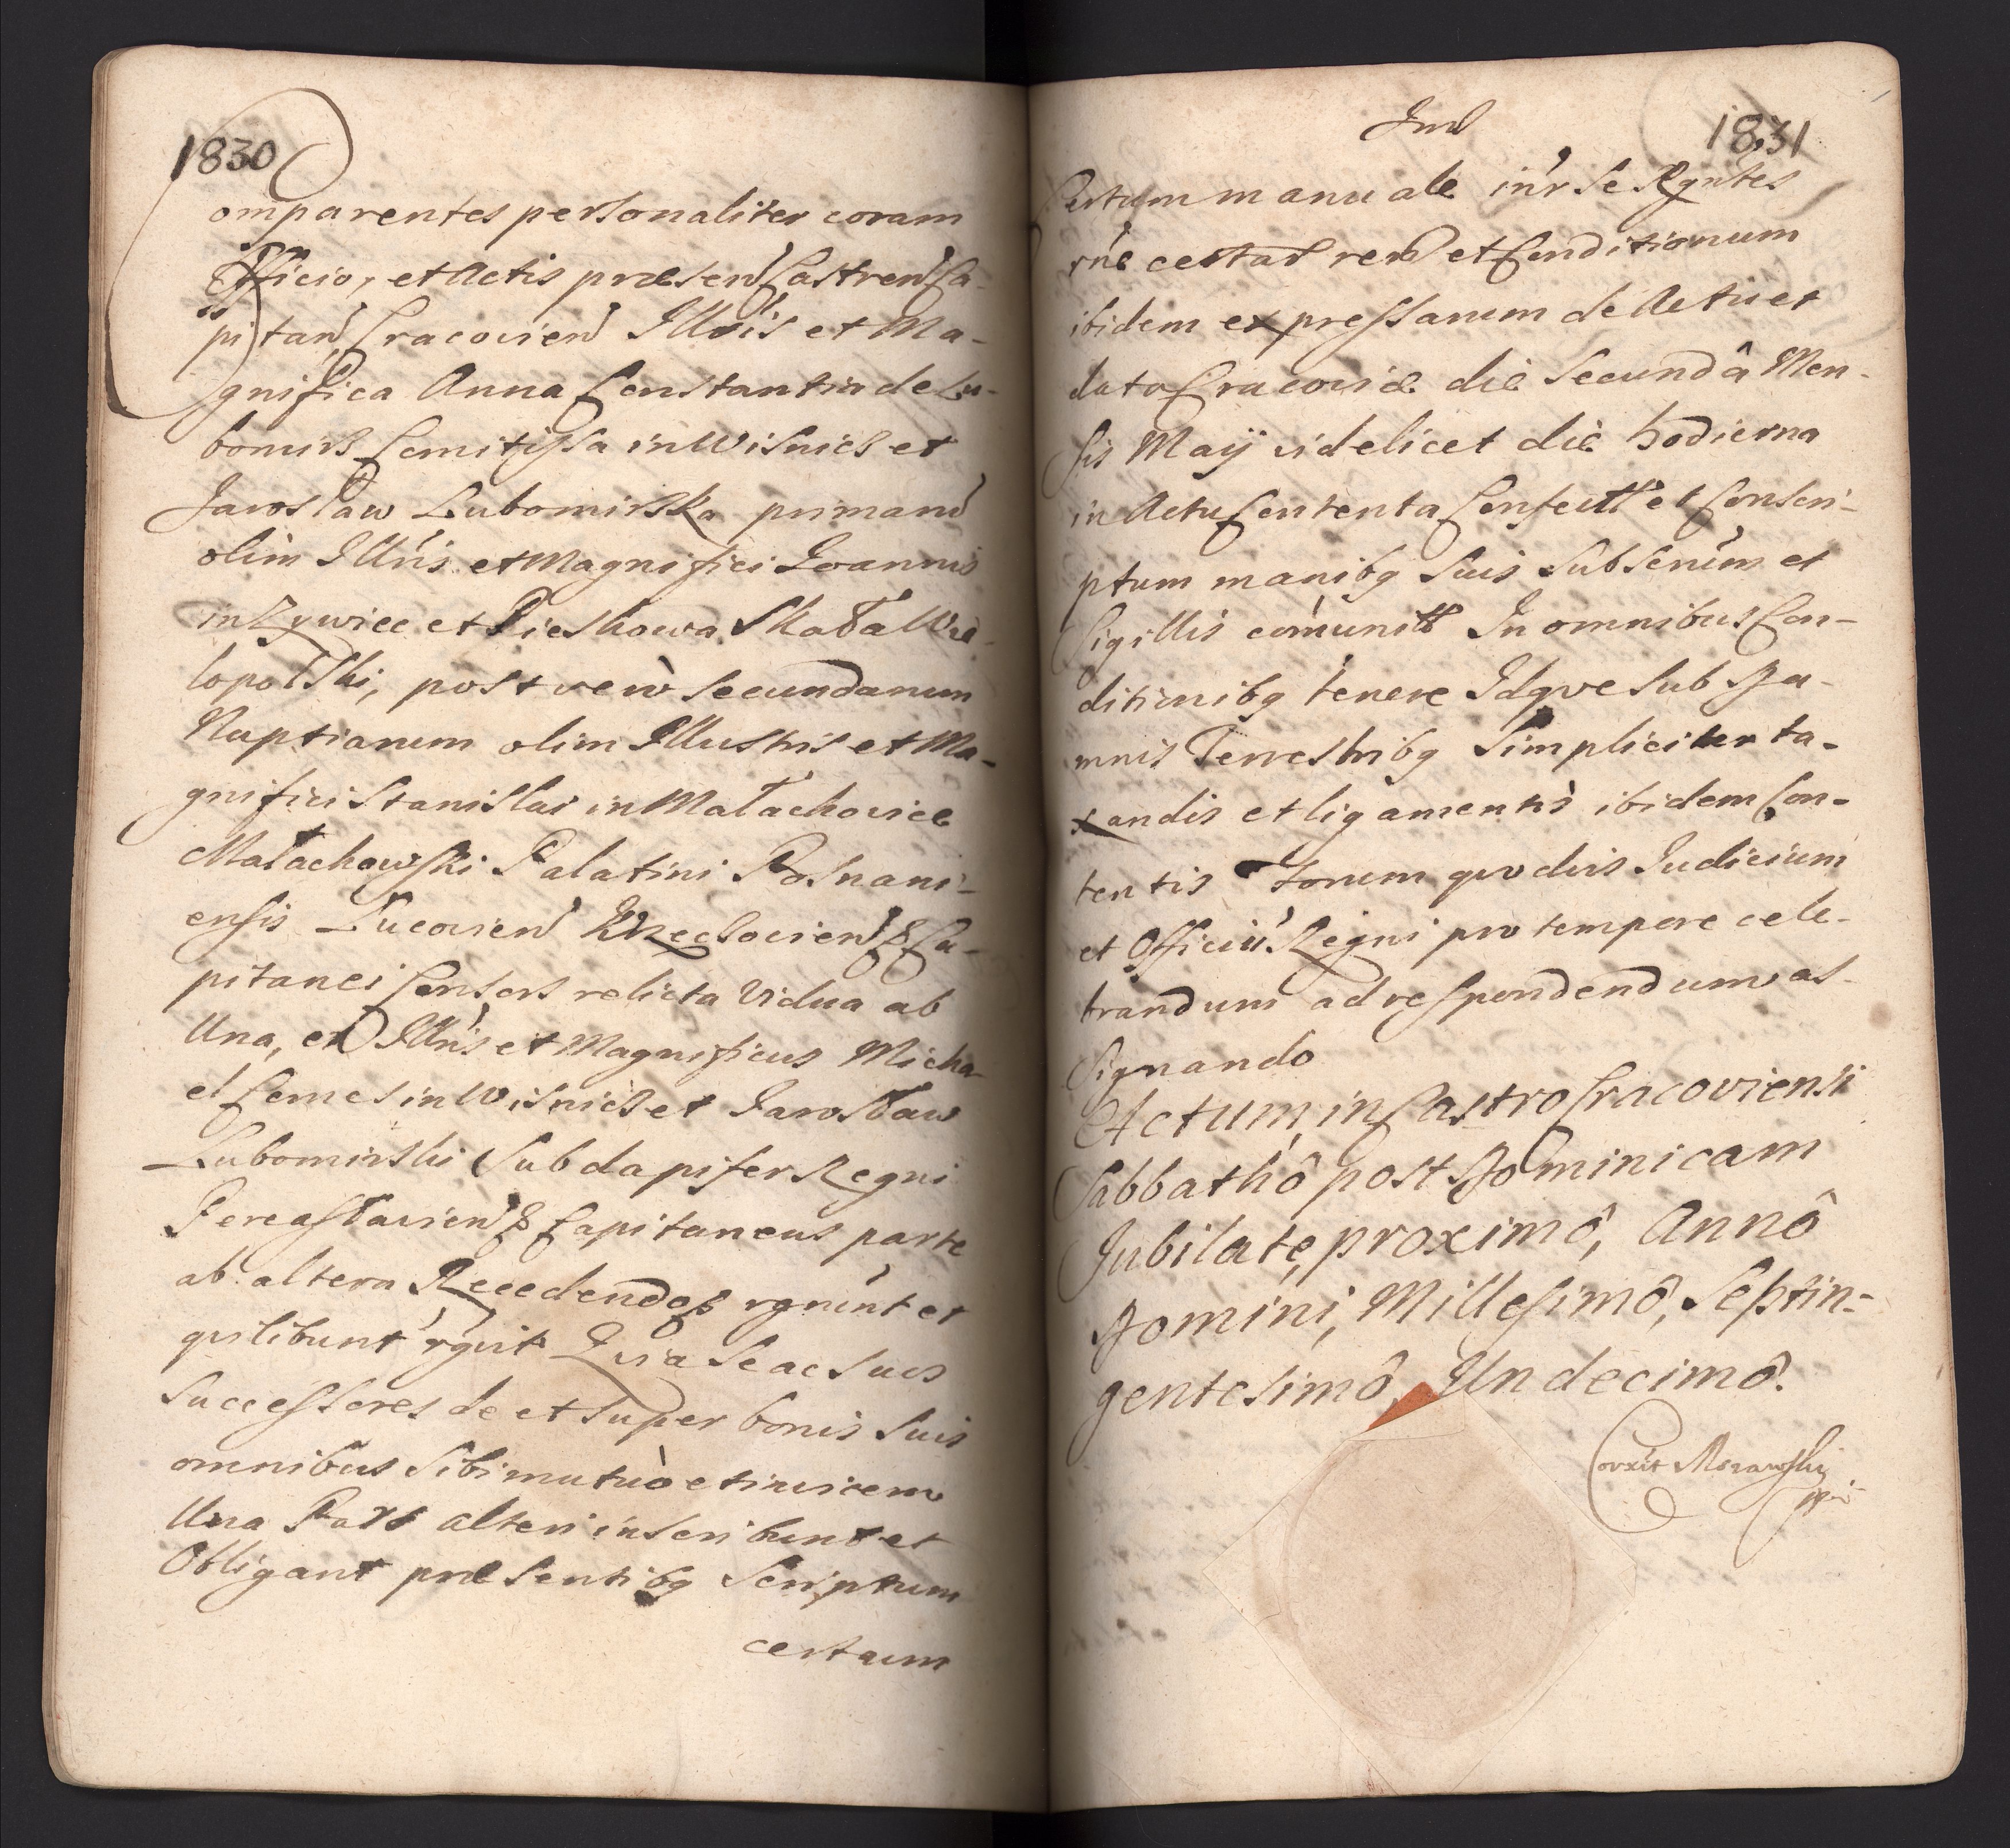 1830
Comparentes personaliter coram
Officio, et Actis præsen Castren Ca-
pitan Cracovien Illris et Ma-
gnifica Anna Constantia de Lu-
bomirz Comitissa in Wisnicz et
Jarosław Lubomirska primam
olim Illris et Magnifici Joannis
in Zywiec et Pieskowa Skała Wie-
lopolski, post verò secundarum
Nuptiarum olim Illustris et Ma-
gnifici Stanislai in Małachovice
Małachowski Palatini Posnani-
ensis Lucovien Ca-
pitanei Consors relicta Vidua ab
Una, et Illris et Magnificus Micha-
el Comes in Wisnicz et Jarosław
Lubomirski Subdapifer Regni
Pereasłavien Capitaneus parte
ab altera Recedendoq rgnunt et
quilibunt rgvit Quia Se ac Suos
Successores de et super bonis Suis
omnibus Sibi mutuò et invicem
Una Pars alteri inscribunt et
Obligant præsentibq Scriptum
certum
1831
Ind
Certum manuale intr Se Rgntes
rne certar rerd et Conditionum
ibidem expressarum de Actu et
dato Cracoviæ die Secundâ Men-
sis Maÿ videlicet die hodierna
in Actu Contenta Confectt et Conscri-
ptum manibq Suis Subscrium et
Sigillis comunitt In omnibus Con-
ditionibq tenere Idqve Sub Da-
mnis Terrestribq Simpliciter ta-
xandis et ligamentis ibidem Con-
tentis forum quodvis Judicium
et Officiu Regni pro tempore cele-
brandum ad respondendum as-
Signando
Actum, in Castro Cracoviensi
Sabbathô post Dominicam
Jubilate, proximô, Annô
Domini, Millesimô, Septin-
gentesimô, Undecimô.
Corrxit Morawski
mp